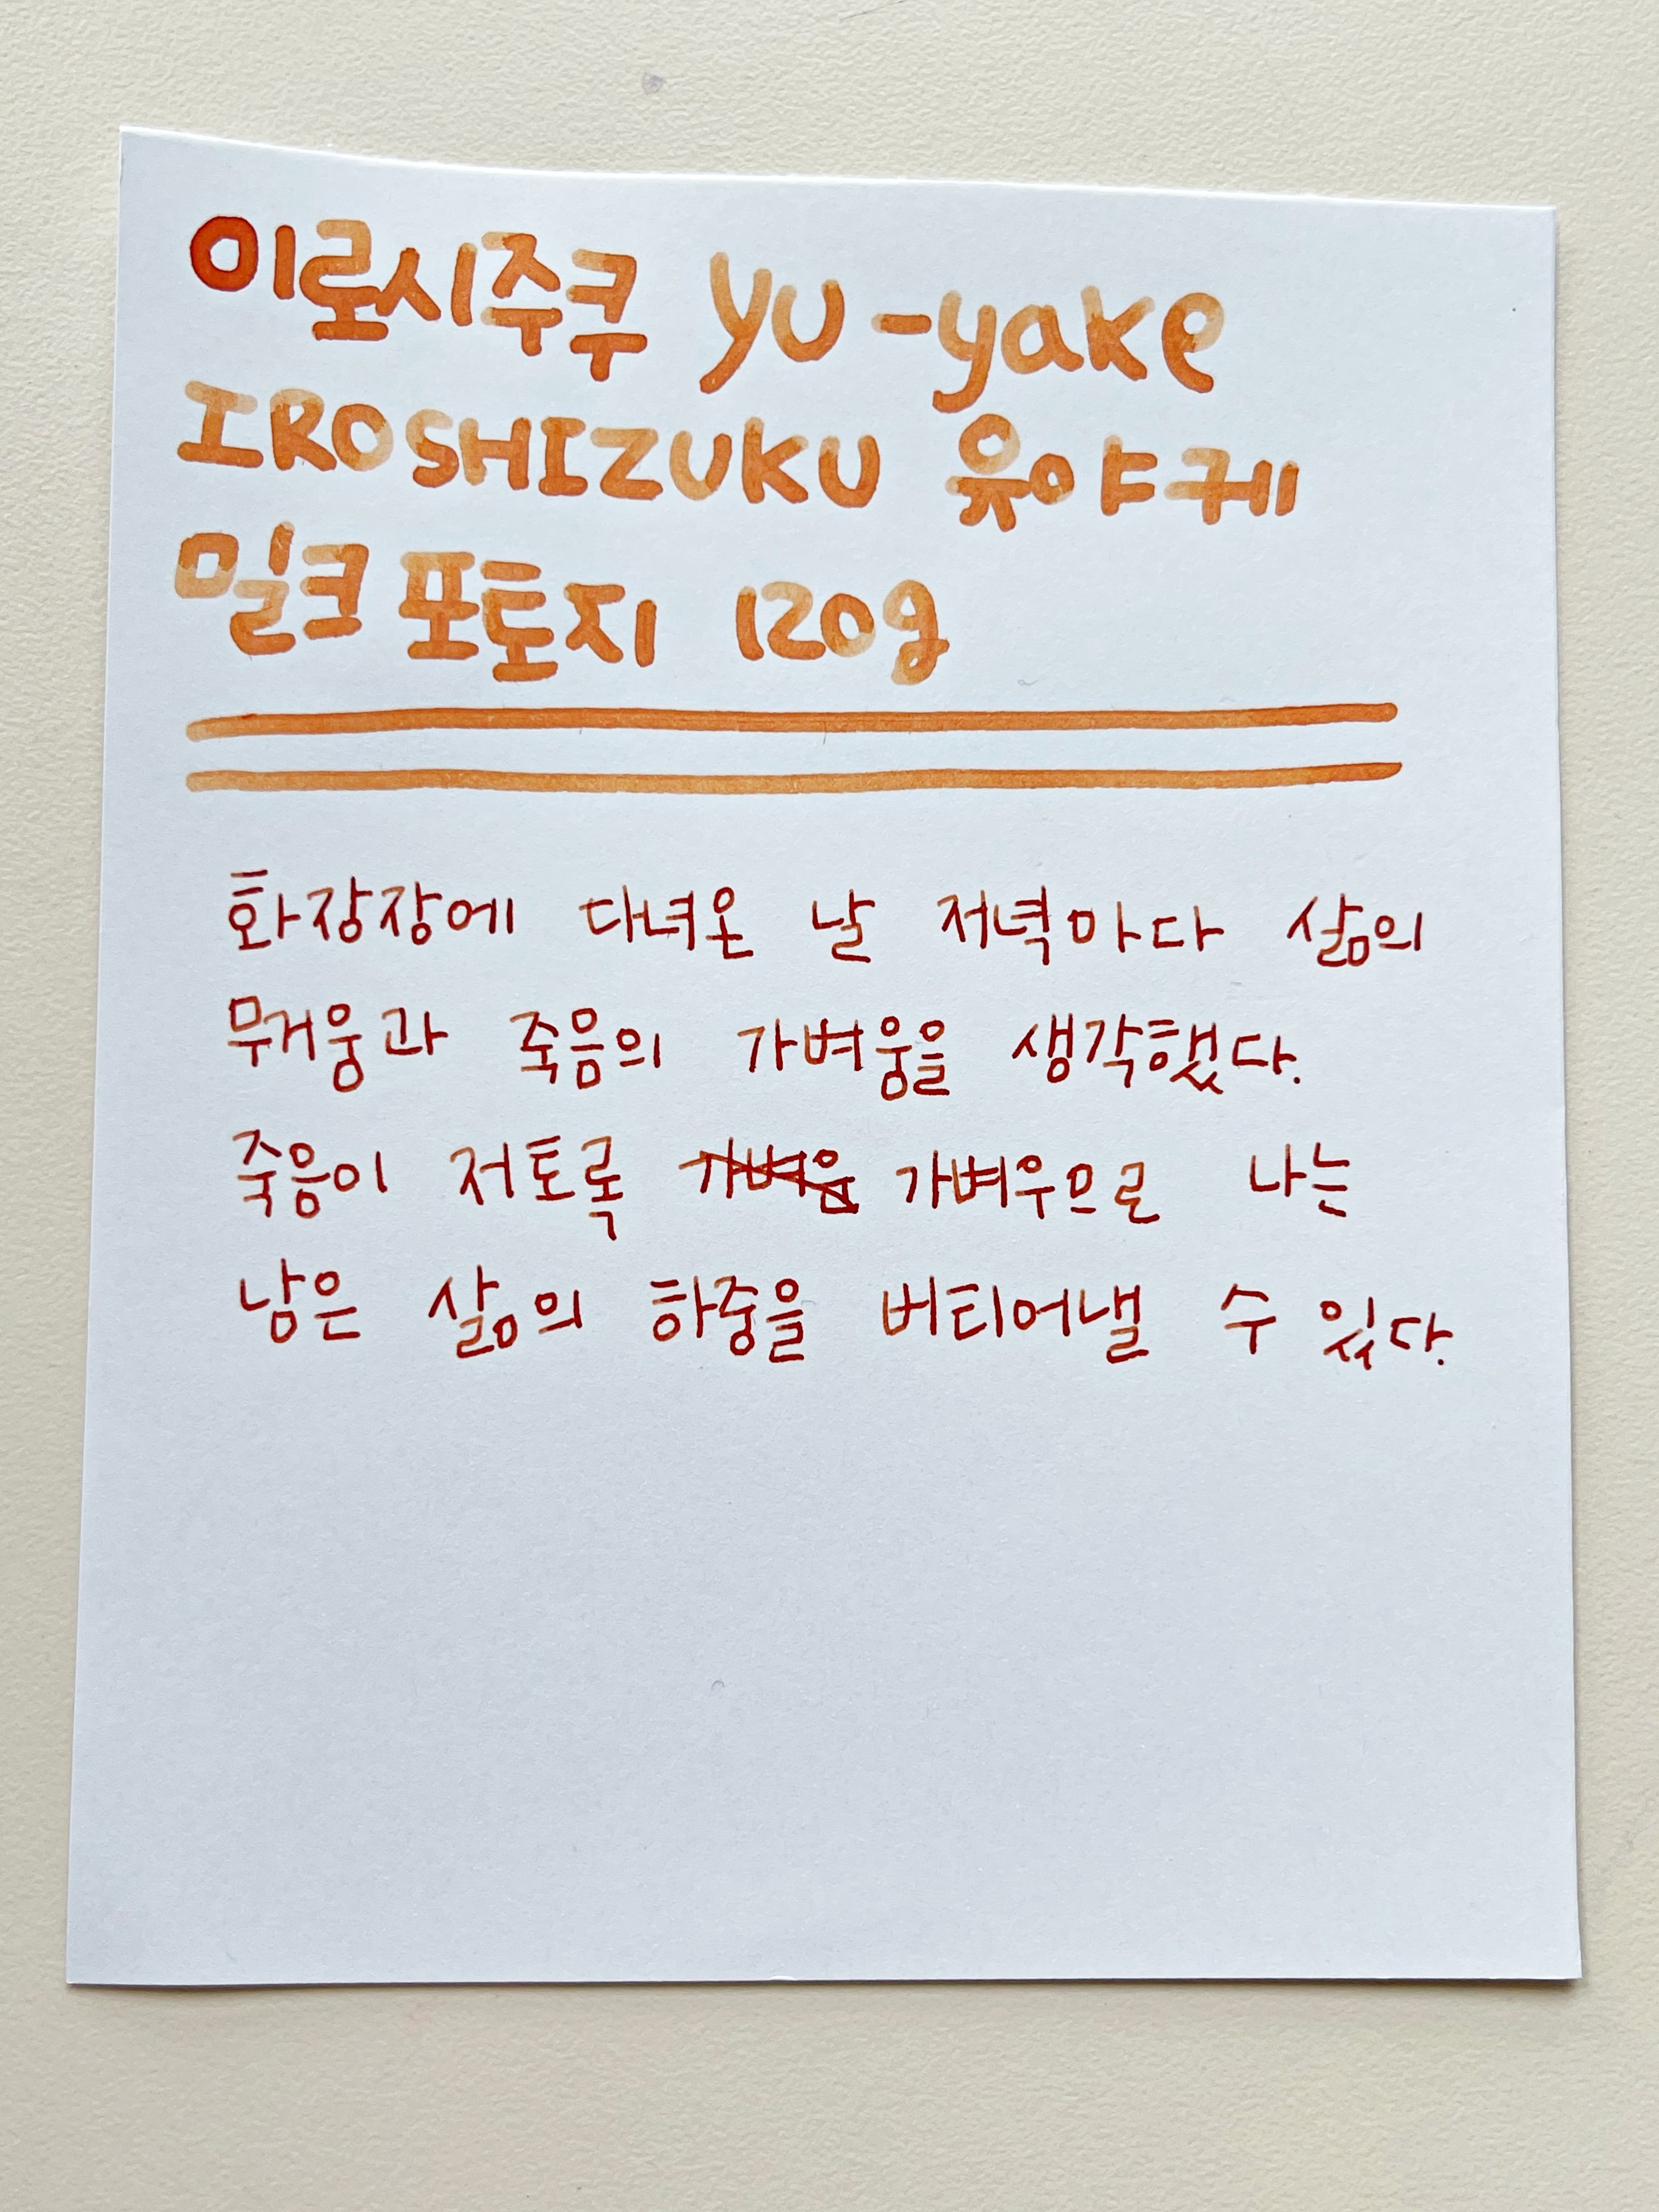 이로시주쿠 yu-yake
IROSHIZUKU 유야케
밀크포토지 120g
화장장에 다녀온 날 저녁마다 삶의
무거움과 죽음의 가벼움을 생각했다.
죽음이 저토록 가벼움 가벼우므로 나는
남은 삶의 하중을 버티어낼 수 있다.